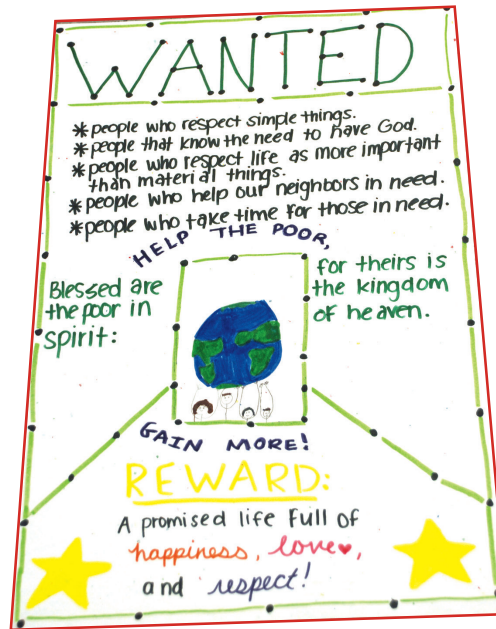 WANTED
*people who respect simple things.
*people that know the need to have God.
*people who respect life as more important
than material things.
*people who help our neighbors in need.
*people who take time for those in need.
HELP THE POOR,
Blessed are
the poor in
spirit:
for theirs is
the kingdom
of heaven.
GAIN MORE!
REWARD:
A promised life full of
happiness, love♥,
and respect!